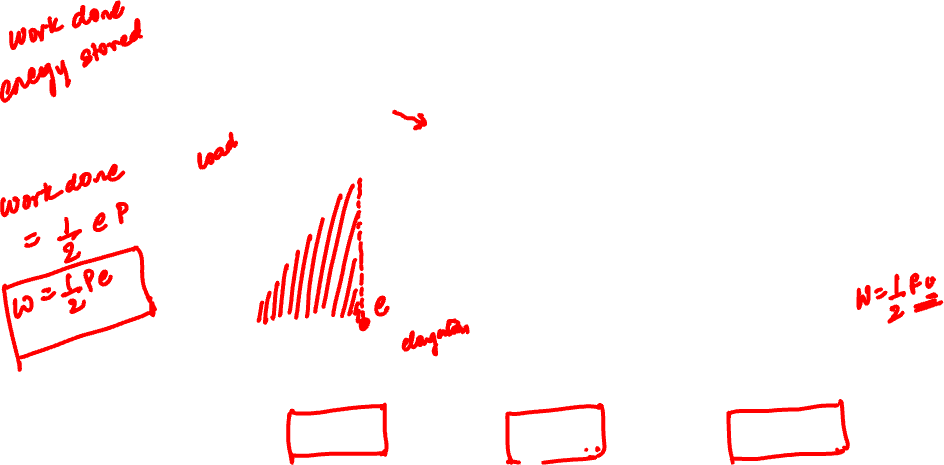 Work done
energy stored
Load
Work done
= 1/2 e P
W = 1/2 Pe
e
elongation
W = 1/2